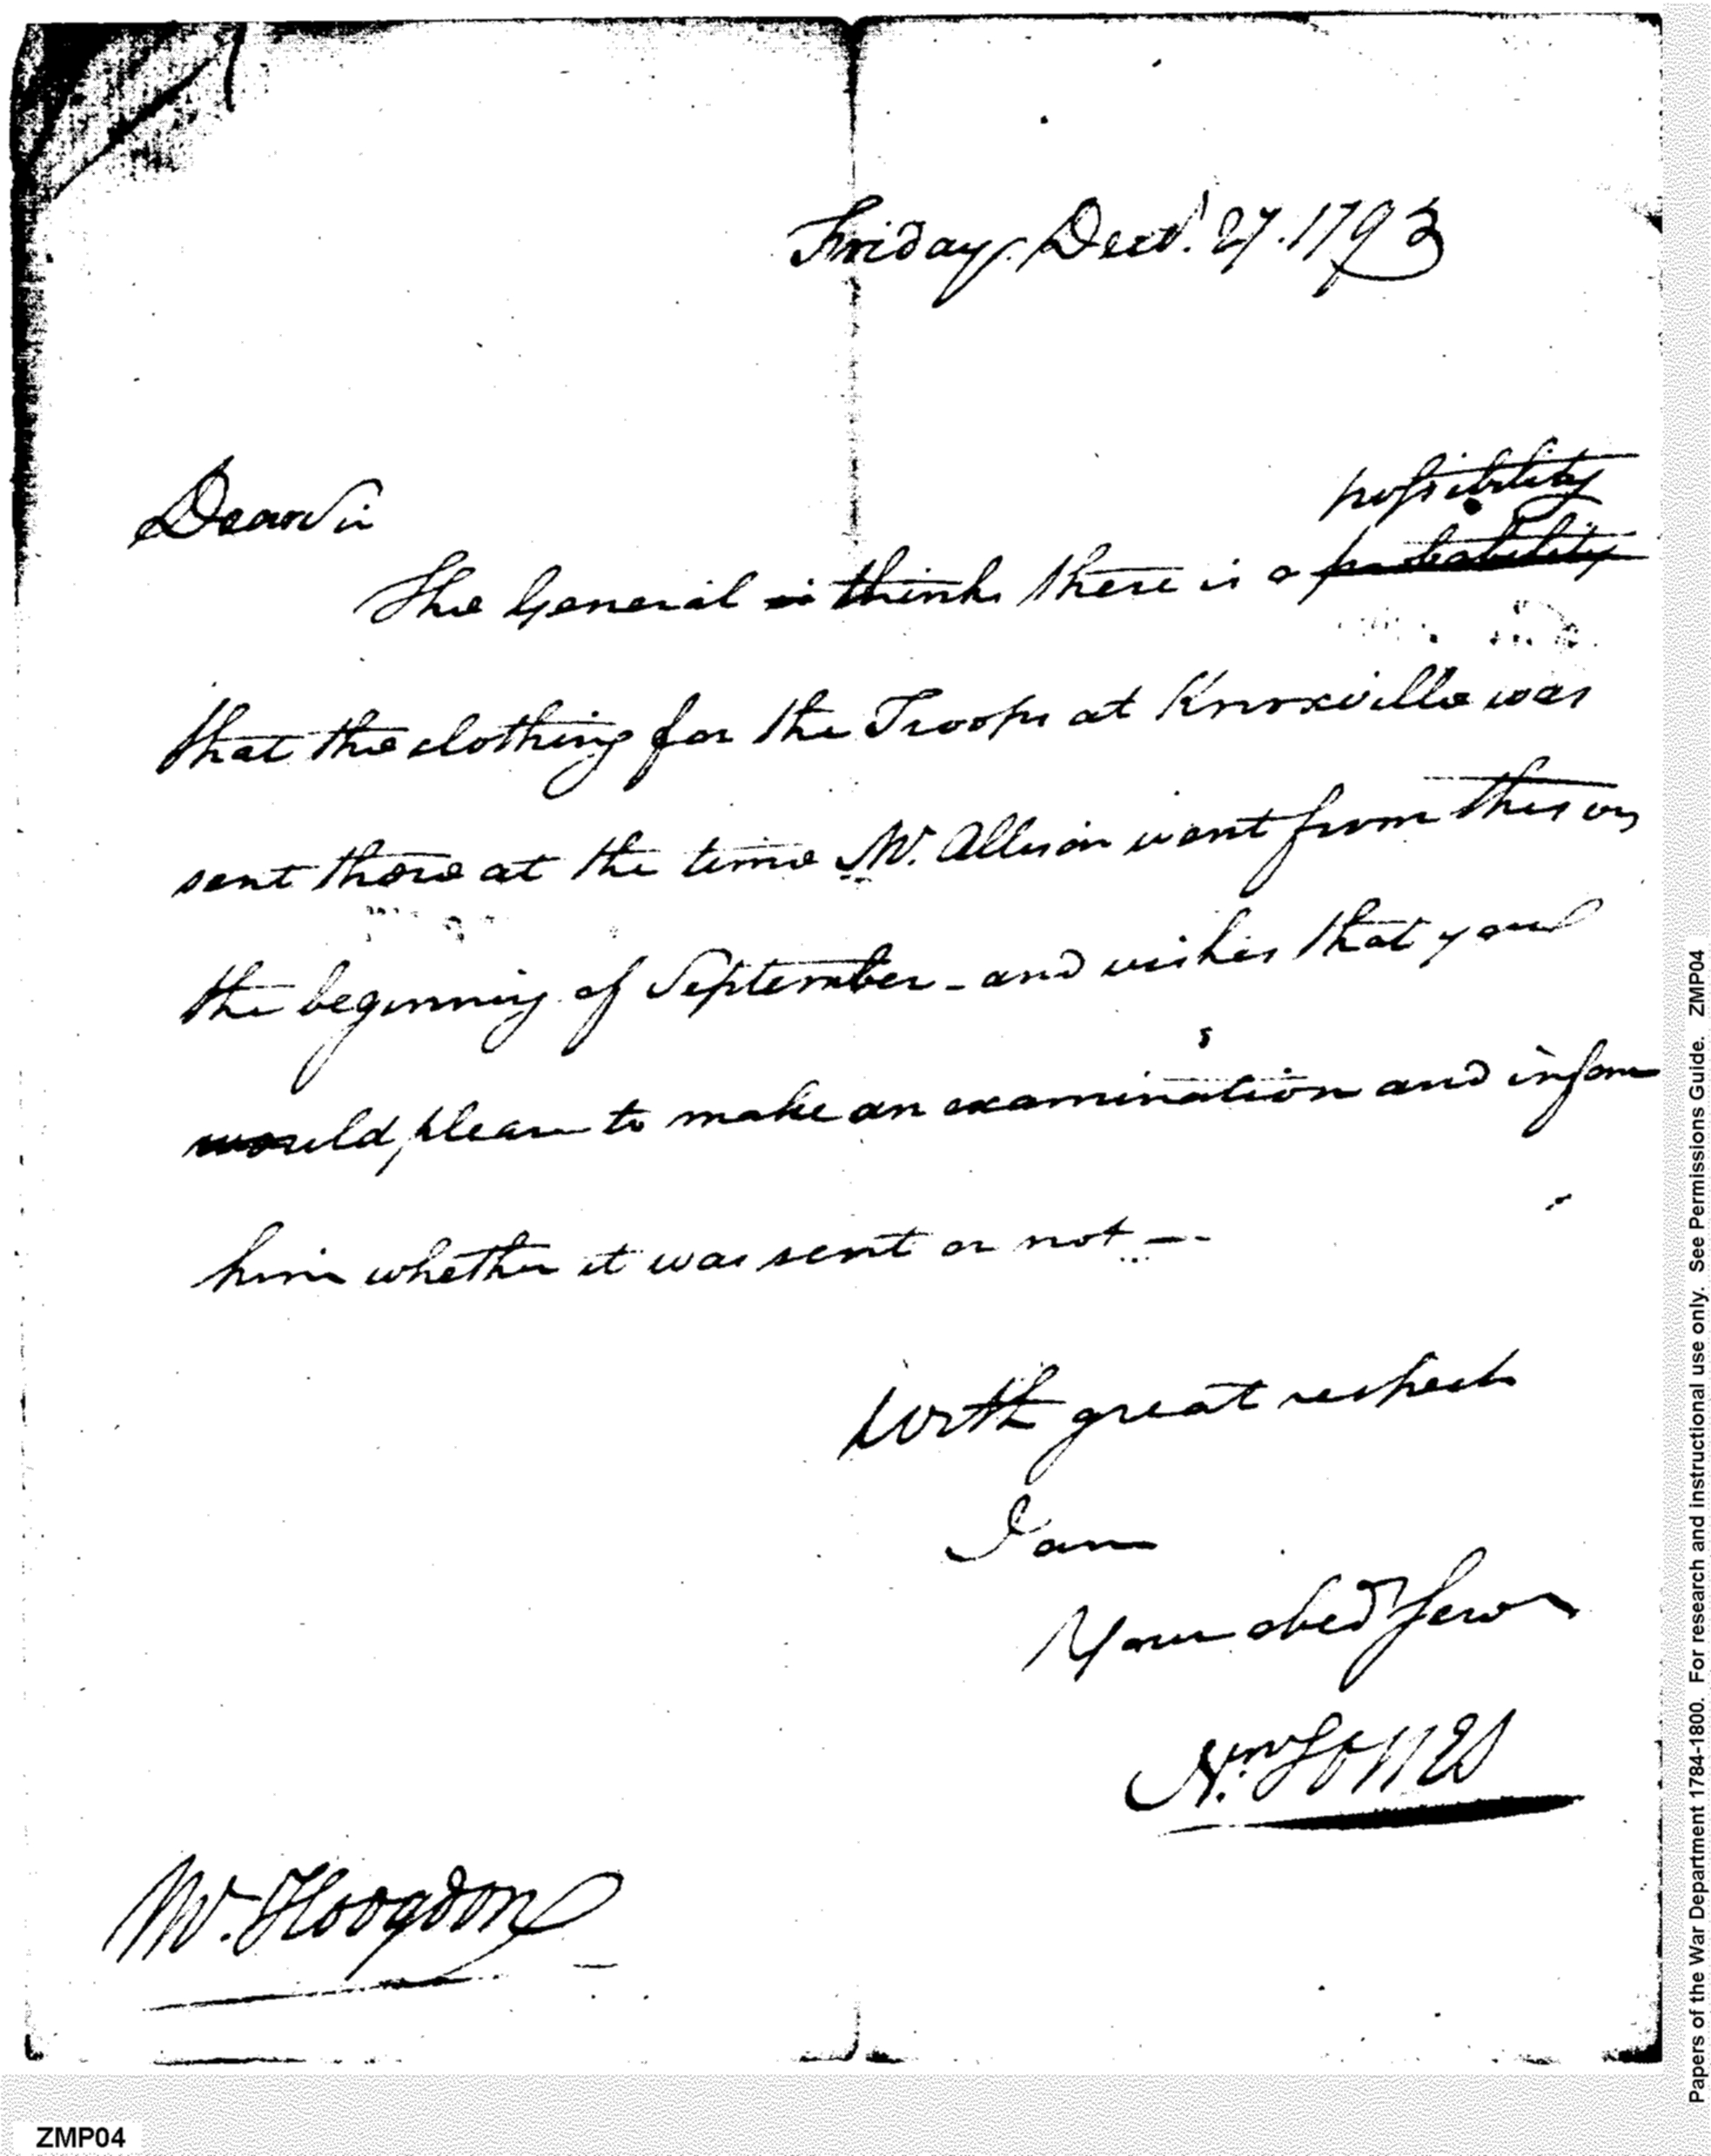 Friday. Decr. 27. 1793
Dear Sir
possibility
The General is thinks there is a probability
that the clothing for the Troops at Knoxville was
sent there at the time Mr. Allison went from this on
the beginning of September - and wishes that you
would please to make an examination and inform
him whether it was sent or not —
With great respect
I am
Your obed Serv
Mr. Hodgdon
ZMP04
Papers of the War Department 1784-1800. For research and instructional use only. See Permissions Guide. ZMP04